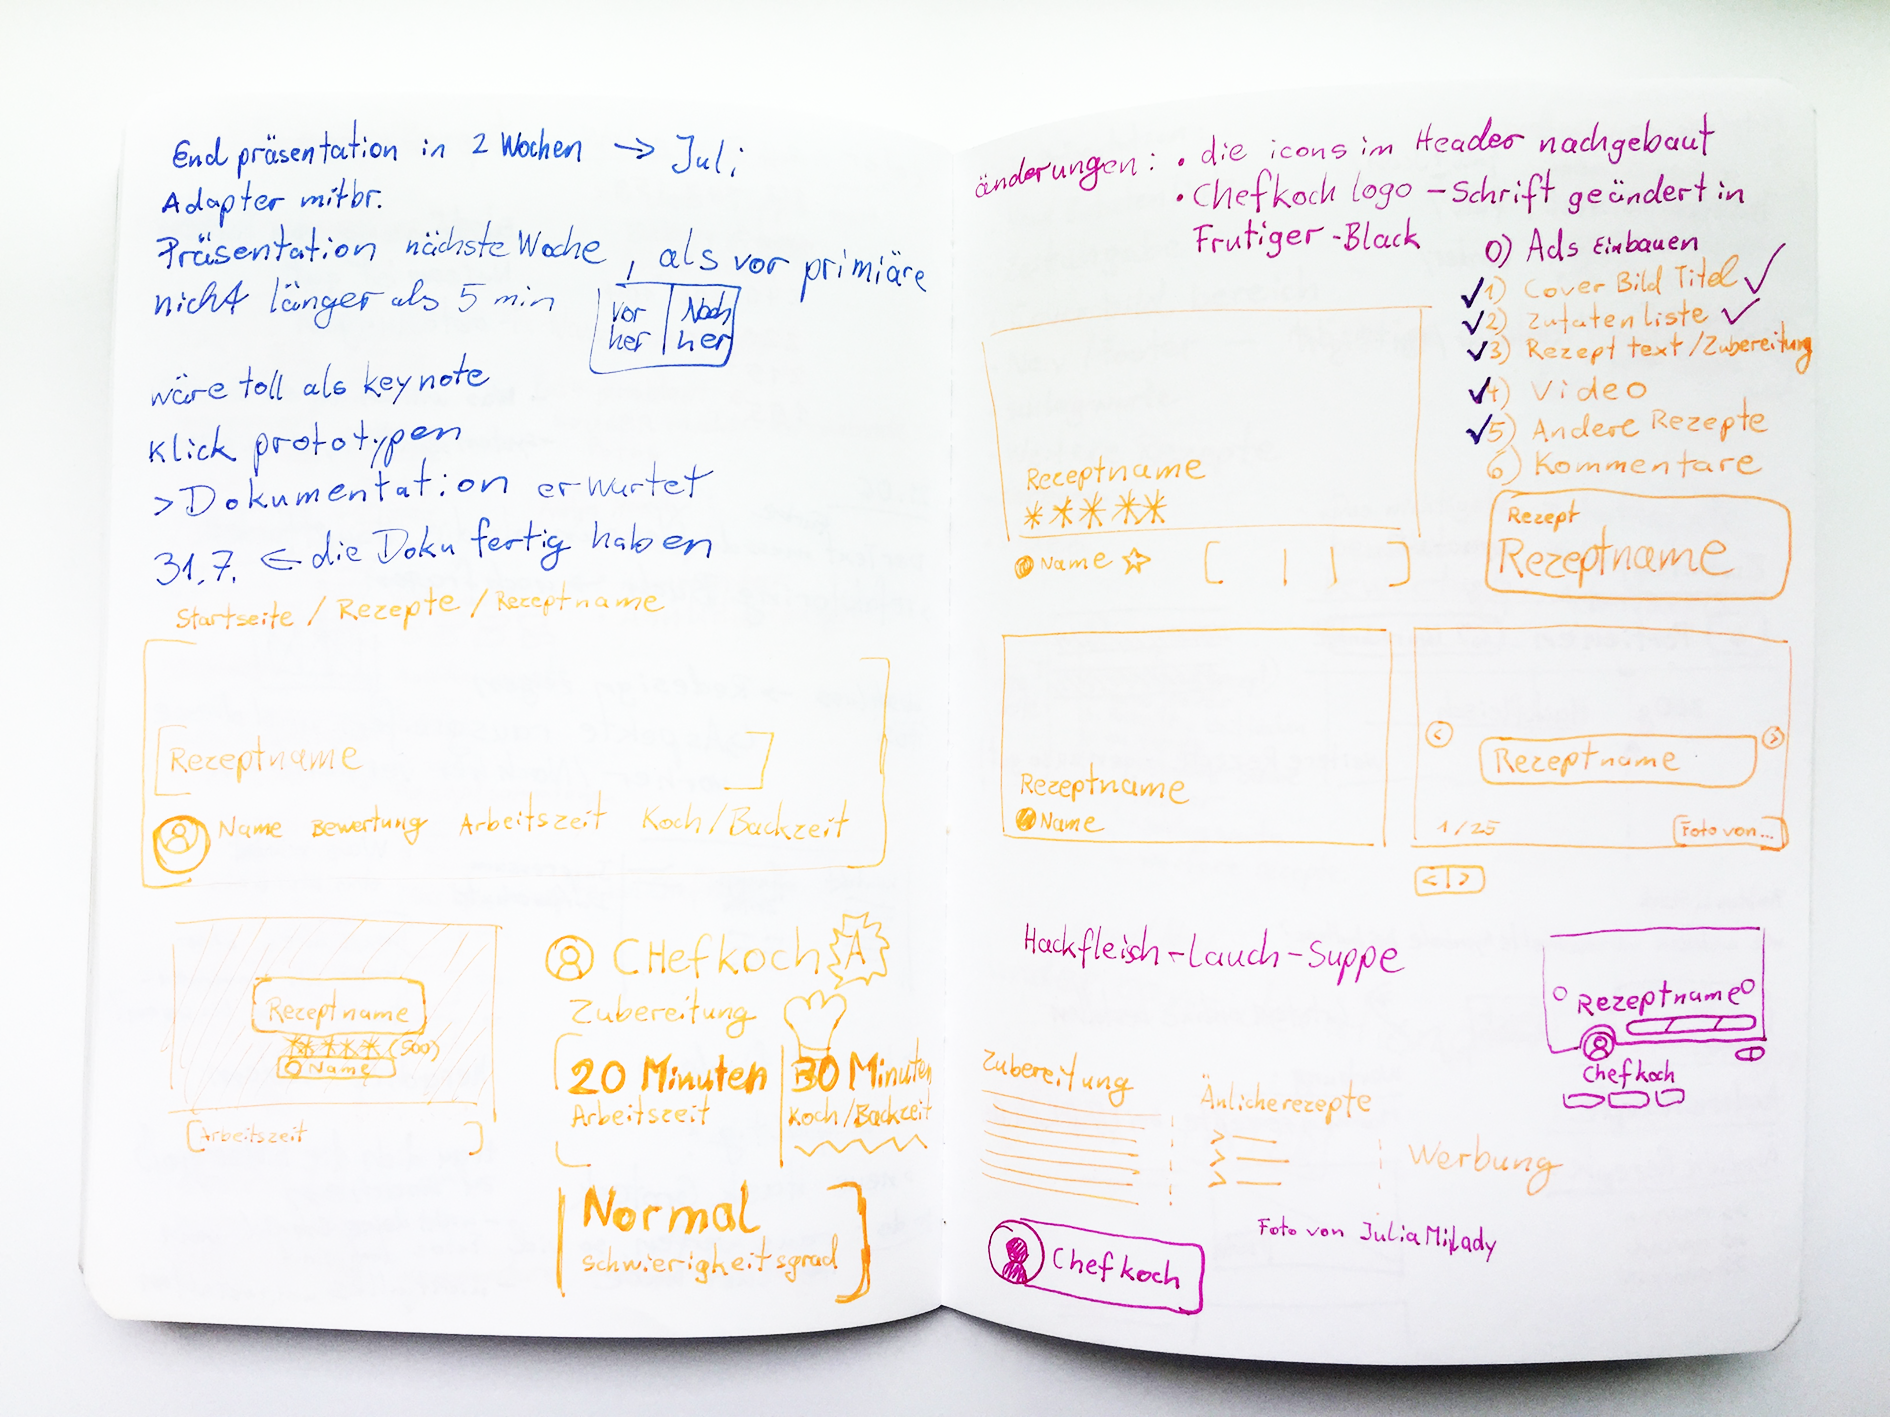 Endpräsentation in 2 Wochen → Juli
Adapter mitbr.
Präsentation nächste Woche, als vor primiäre
nicht länger als 5 min
Vor her | Nach her
wäre toll als keynote
Klick prototypen
> Dokumentation erwartet
31.7. ← die Doku fertig haben
Startseite / Rezepte / Rezeptname
Rezeptname
Name Bewertung Arbeitszeit Koch/Backzeit
Rezeptname
(500)
Name
[Arbeitszeit ]
CHefkoch A
Zubereitung
20 Minuten | 30 Minuten
Arbeitszeit Koch/Backzeit
Normal
schwierigkeitsgrad
änderungen: • die icons im Header nachgebaut
• Chefkoch logo - Schrift geändert in
Frutiger - Black
0) Ads Einbauen
✓1) Cover Bild Titel ✓
✓2) Zutaten liste ✓
✓3) Rezept text / Zubereitung
✓4) Video
✓5) Andere Rezepte
6) Kommentare
Rezeptname
Name
Rezept
Rezeptname
Rezeptname
Name
< Rezeptname >
1/25 Foto von...
< | >
Hackfleisch-Lauch-Suppe
Rezeptname
Chefkoch
Zubereitung
Änlicherezepte
Werbung
Foto von Julia Milady
Chefkoch